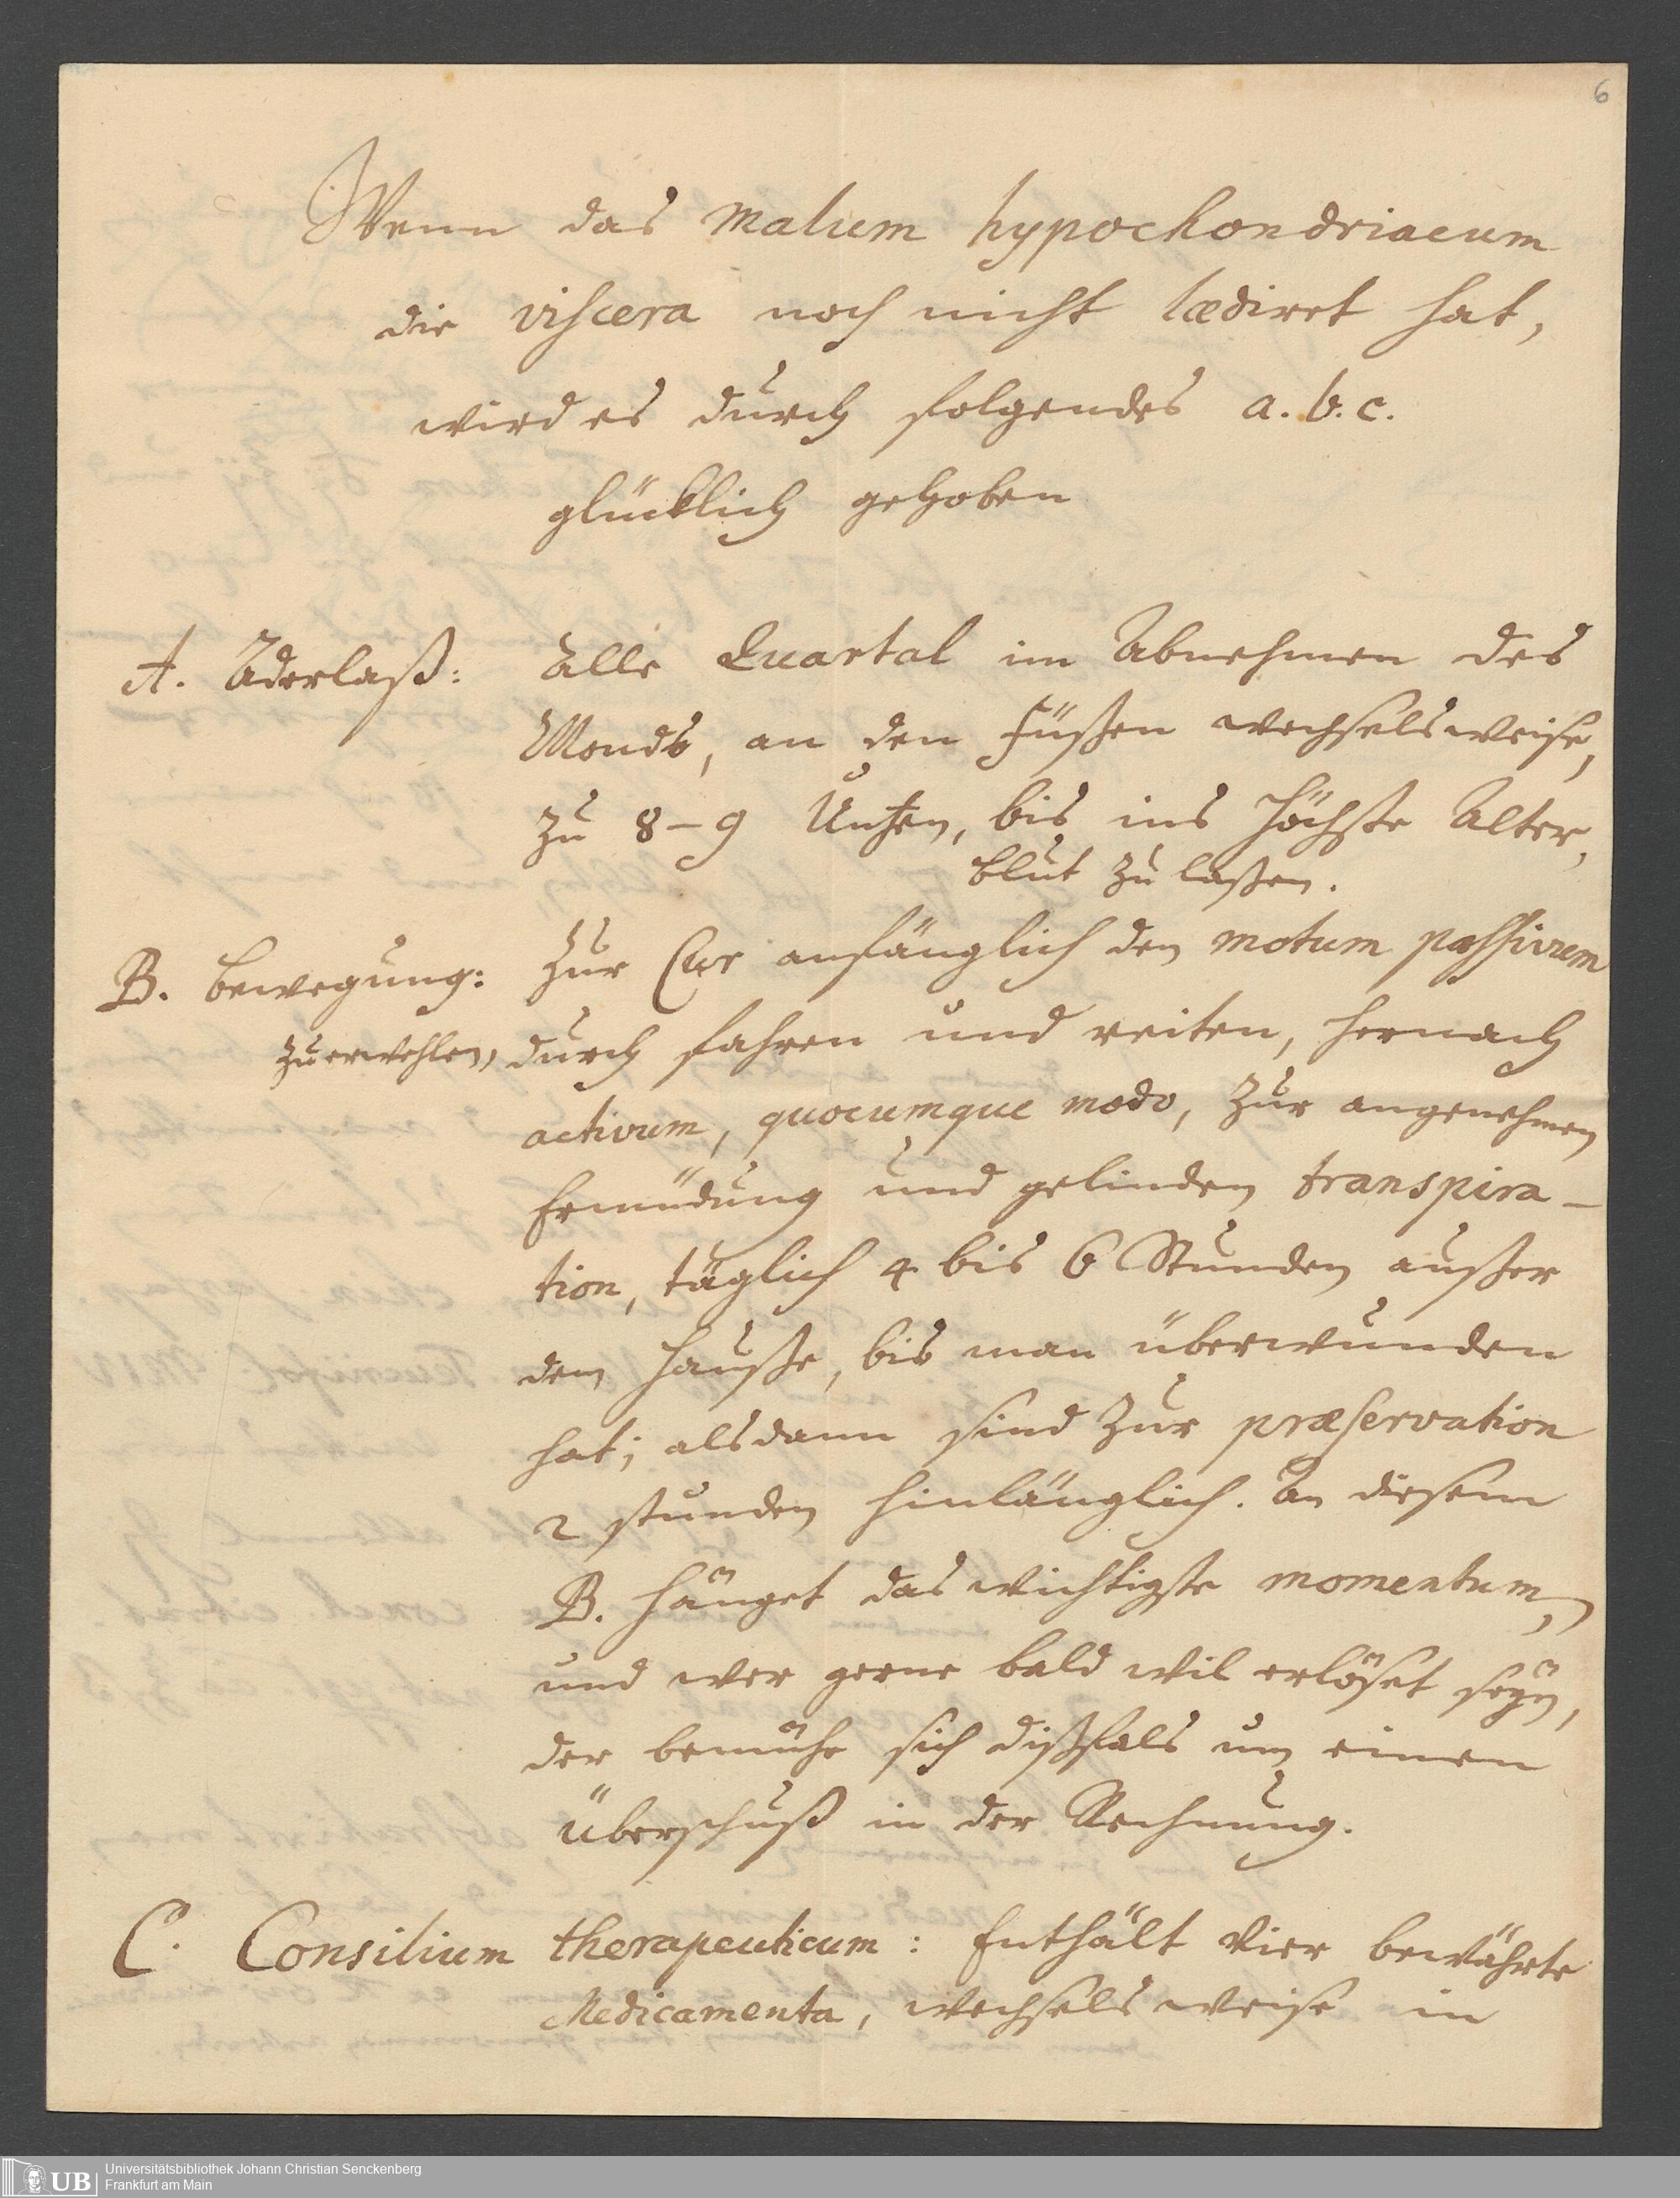 6
Wenn das malum hypochondriacum
die viscera noch nicht lædiret hat,
wird es durch folgendes a. b. c.
glücklich gehoben
A. Aderlaß: Alle Quartal im Abnehmen des
Monds, an den Füßen wechselsweise,
zu 8–9 Untzen, bis ins höchste Alter,
blut zu laßen.
B. Bewegung: Zur Cur anfänglich den motum passivum
zu erwehlen, durch fahren und reiten, hernach
activum, quocumque modo, zur angenehmen
Ermüdung und gelinden transpira-
tion, täglich 4 bis 6 Stunden außer
dem Hauße, bis man überwunden
hat; alsdann sind zur præservation
2 stunden hinlänglich. An diesem
B. hänget das wichtigste momentum,
und wer gerne bald wil erlöset seyn,
der bemühe sich dißfals um einen
Überschuß in der Rechnung.
C. Consilium therapeuticum: Enthält vier bewährte
Medicamenta, wechselsweise in
UB
Universitätsbibliothek Johann Christian Senckenberg
Frankfurt am Main